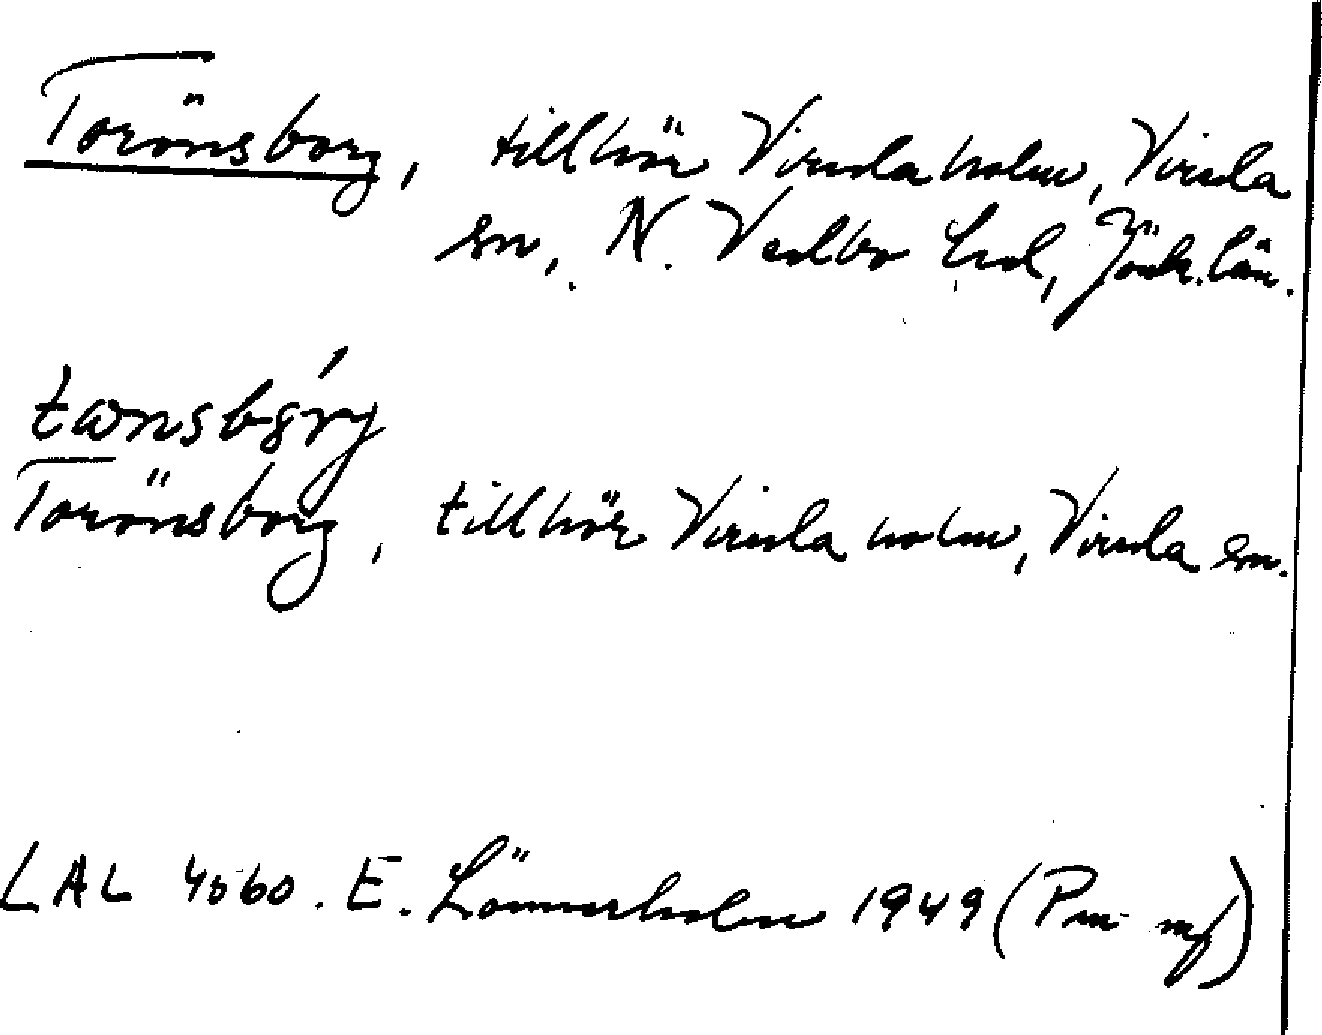 Torönsborg, tillhör Virsdaholm, Virsda
sn, N. Vedbo hd, Jönk. län.
Torönsborg, tillhör Virsdaholm, Virsda sn.
LAL 4060. E. Lönnerholm 1949 (Pm